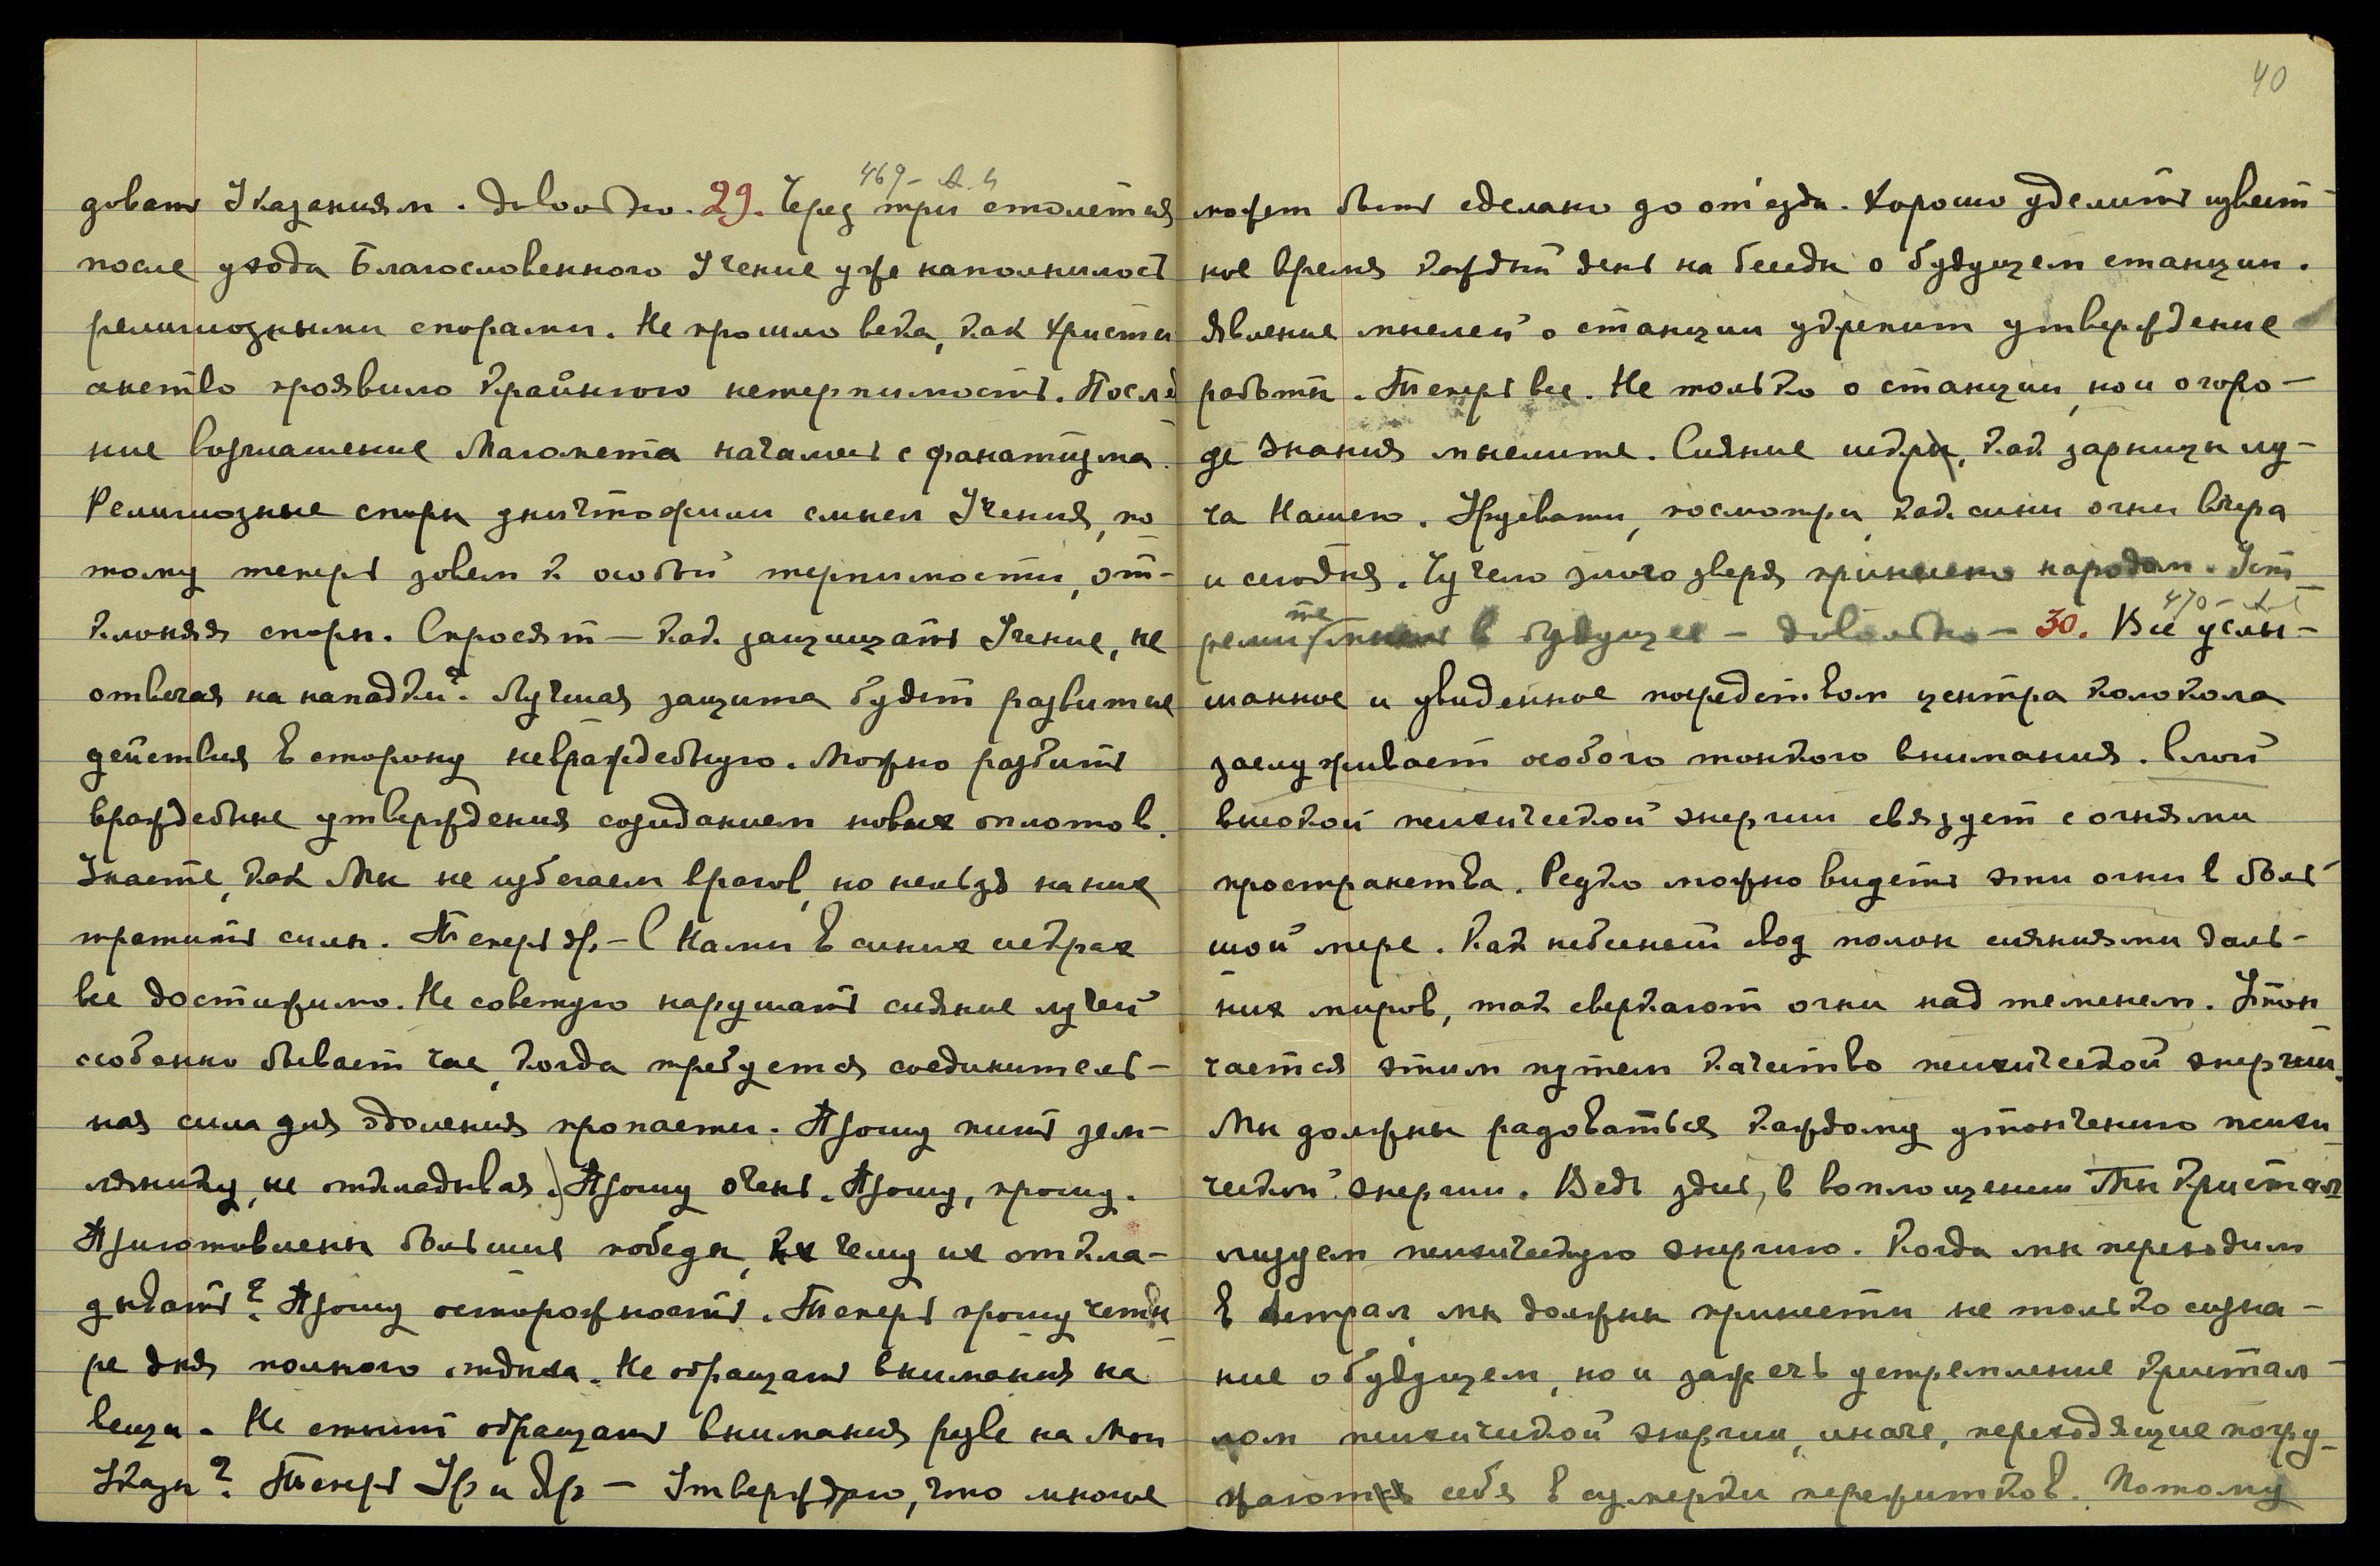 довать Указаниям. Довольно. 29. Через три столетия
после ухода Благословенного Учение уже наполнилось
религиозными спорами. Не прошло века, как христи
анство проявило крайнюю нетерпимость. Послед
ние возглашение Магомета начались с фанатизма.
Религиозные споры уничтожили смысл Учения, по
тому теперь зовем к особой терпимости, от-
клоняя споры. Спросят – как защищать Учение, не
отвечая на нападки? Лучшая защита будет развитие
действия в сторону невраждебную. Можно разбить
враждебные утверждения созиданием новых оплотов.
Знаете, как Мы не избегаем врагов, но нельзя на них
тратить силы. Теперь др. – С Нами в синих искрах
все достижимо. Не советую нарушать сияние лучей
особенно бывает час, когда требуется соединитель-
ная сила для одоления пропасти. Прошу пить зем-
лянику, не откладывая.) Прошу очень. Прошу, прошу.
Приготовлены большие победы, к чему их откла-
дывать? Прошу осторожность. Теперь прошу четы
ре дня полного отдыха. Не обращать внимания на
вещи. Не стоит обращать внимания разве на Мои
Указы? Теперь Ур и Др – Утверждаю, что многое
40
469 – А. Й
может быть сделано до отъезда. Хорошо уделить извест-
ное время каждый день на беседы о будущем станции.
Явление мыслей о станции укрепит утверждение
работы. Теперь все. Не только о станции, но и о горо-
де Знания мыслите. Сияние искры, как зарницы лу-
ча Нашего. Урусвати, посмотри, как сини огни вчера
и сегодня. Чучело злого зверя принесено народом. Уст
470 – А. Й
ремите мысль в будущее – довольно – 30. Все услы-
шанное и увиденное посредством центра колокола
заслуживает особого тонкого внимания. Слой
высокой психической энергии связует с огнями
пространства. Редко можно видеть эти огни в боль-
шой мере. Как небесный свод полон сияниями даль-
них миров, так сверкают огни над теменем. Утон
чается этим путем качество психической энергии.
Мы должны радоваться каждому утончению психи-
ческой энергии. Ведь здесь, в воплощении Мы кристал
лизуем психическую энергию. Когда мы переходим
в Астрал мы должны принести не только созна-
ние о будущем, но и зажечь устремление кристал-
лом психической энергии, иначе, переходящие погру-
жают себя в сумерки пережитков. Потому